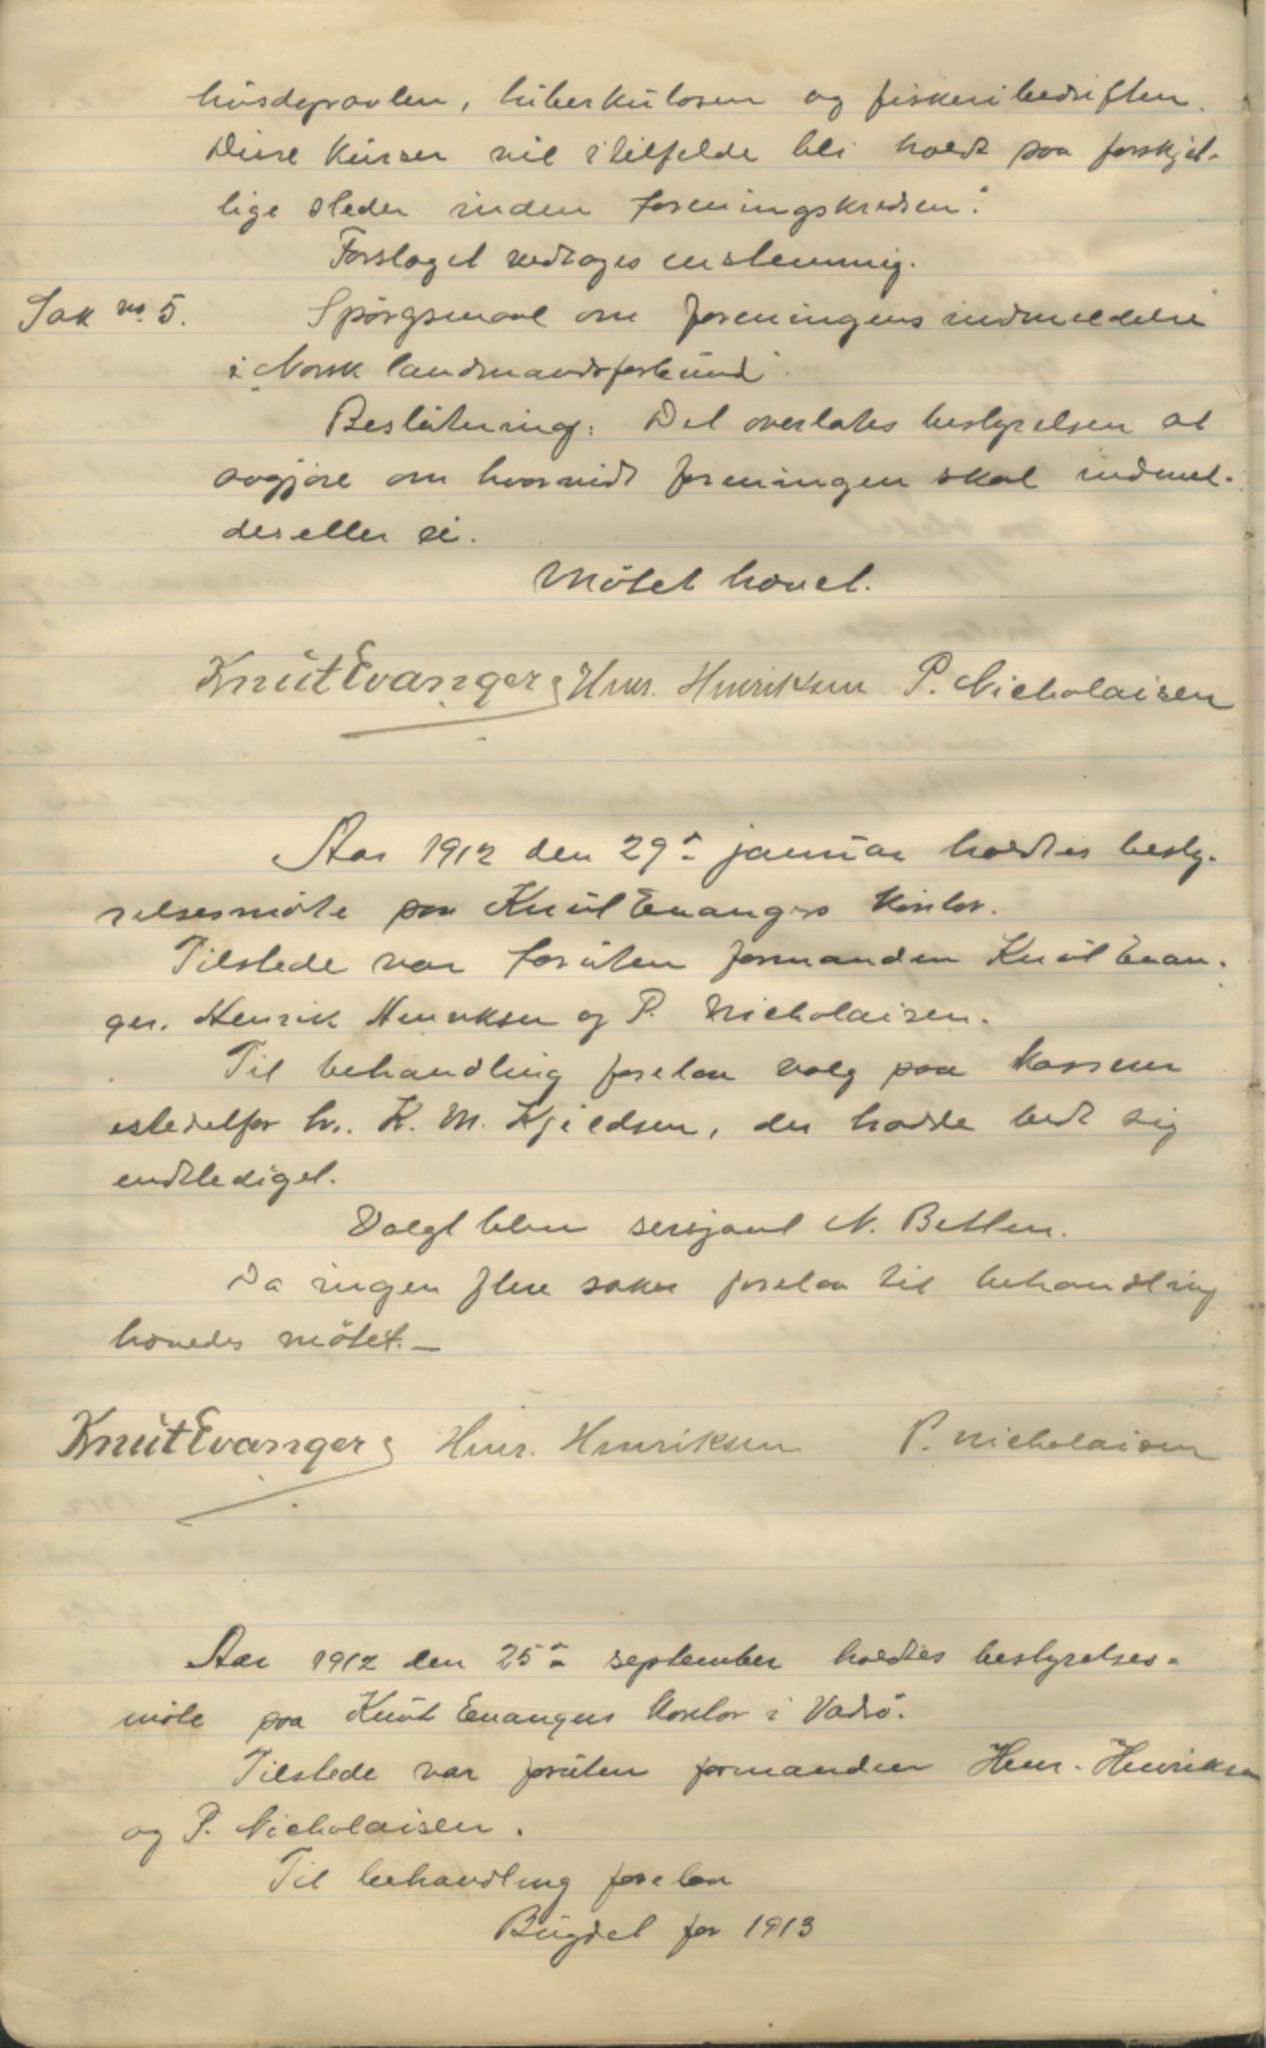 husdyravlen, tuberkulosen og fiskeribedriften.
Disse kurser vil i tilfelde bli holdt paa forskjel-
lige steder inden foreningskredsen."
Forslaget vedtoges enstemmig.
Sak no. 5. Spørgsmaal om foreningens indmeldelse
i "Norsk landmandsforbund".
Beslutning: Det overlates bestyrelsen at
avgjøre om hvorvidt foreningen skal indmel-
des eller ei.
Møtet hævet.
Knut Evanger Henr. Henriksen P. Nicholaisen
Aar 1912 den 29de januar holdtes besty-
relsesmøte paa Knut Evangers kontor.
Tilstede var foruten formanden Knut Evan-
ger, Henrik Henriksen og P. Nicholaisen.
Til behandling forelaa valg paa kasserer
istedetfor hr. K. M. Kjeldsen, der hadde bedt sig
endtlediget.
Valgt blev sersjant N. Betten.
Da ingen flere saker forelaa til behandling
hævedes møtet.—
Knut Evanger Henr. Henriksen P. Nicholaisen
Aar 1912 den 25de september holdtes bestyrelses-
møte paa Knut Evangers kontor i Vadsö.
Tilstede var foruten formanden Henr. Henriksen
og P. Nicholaisen.
Til behandling forelaa
Bugdet for 1913